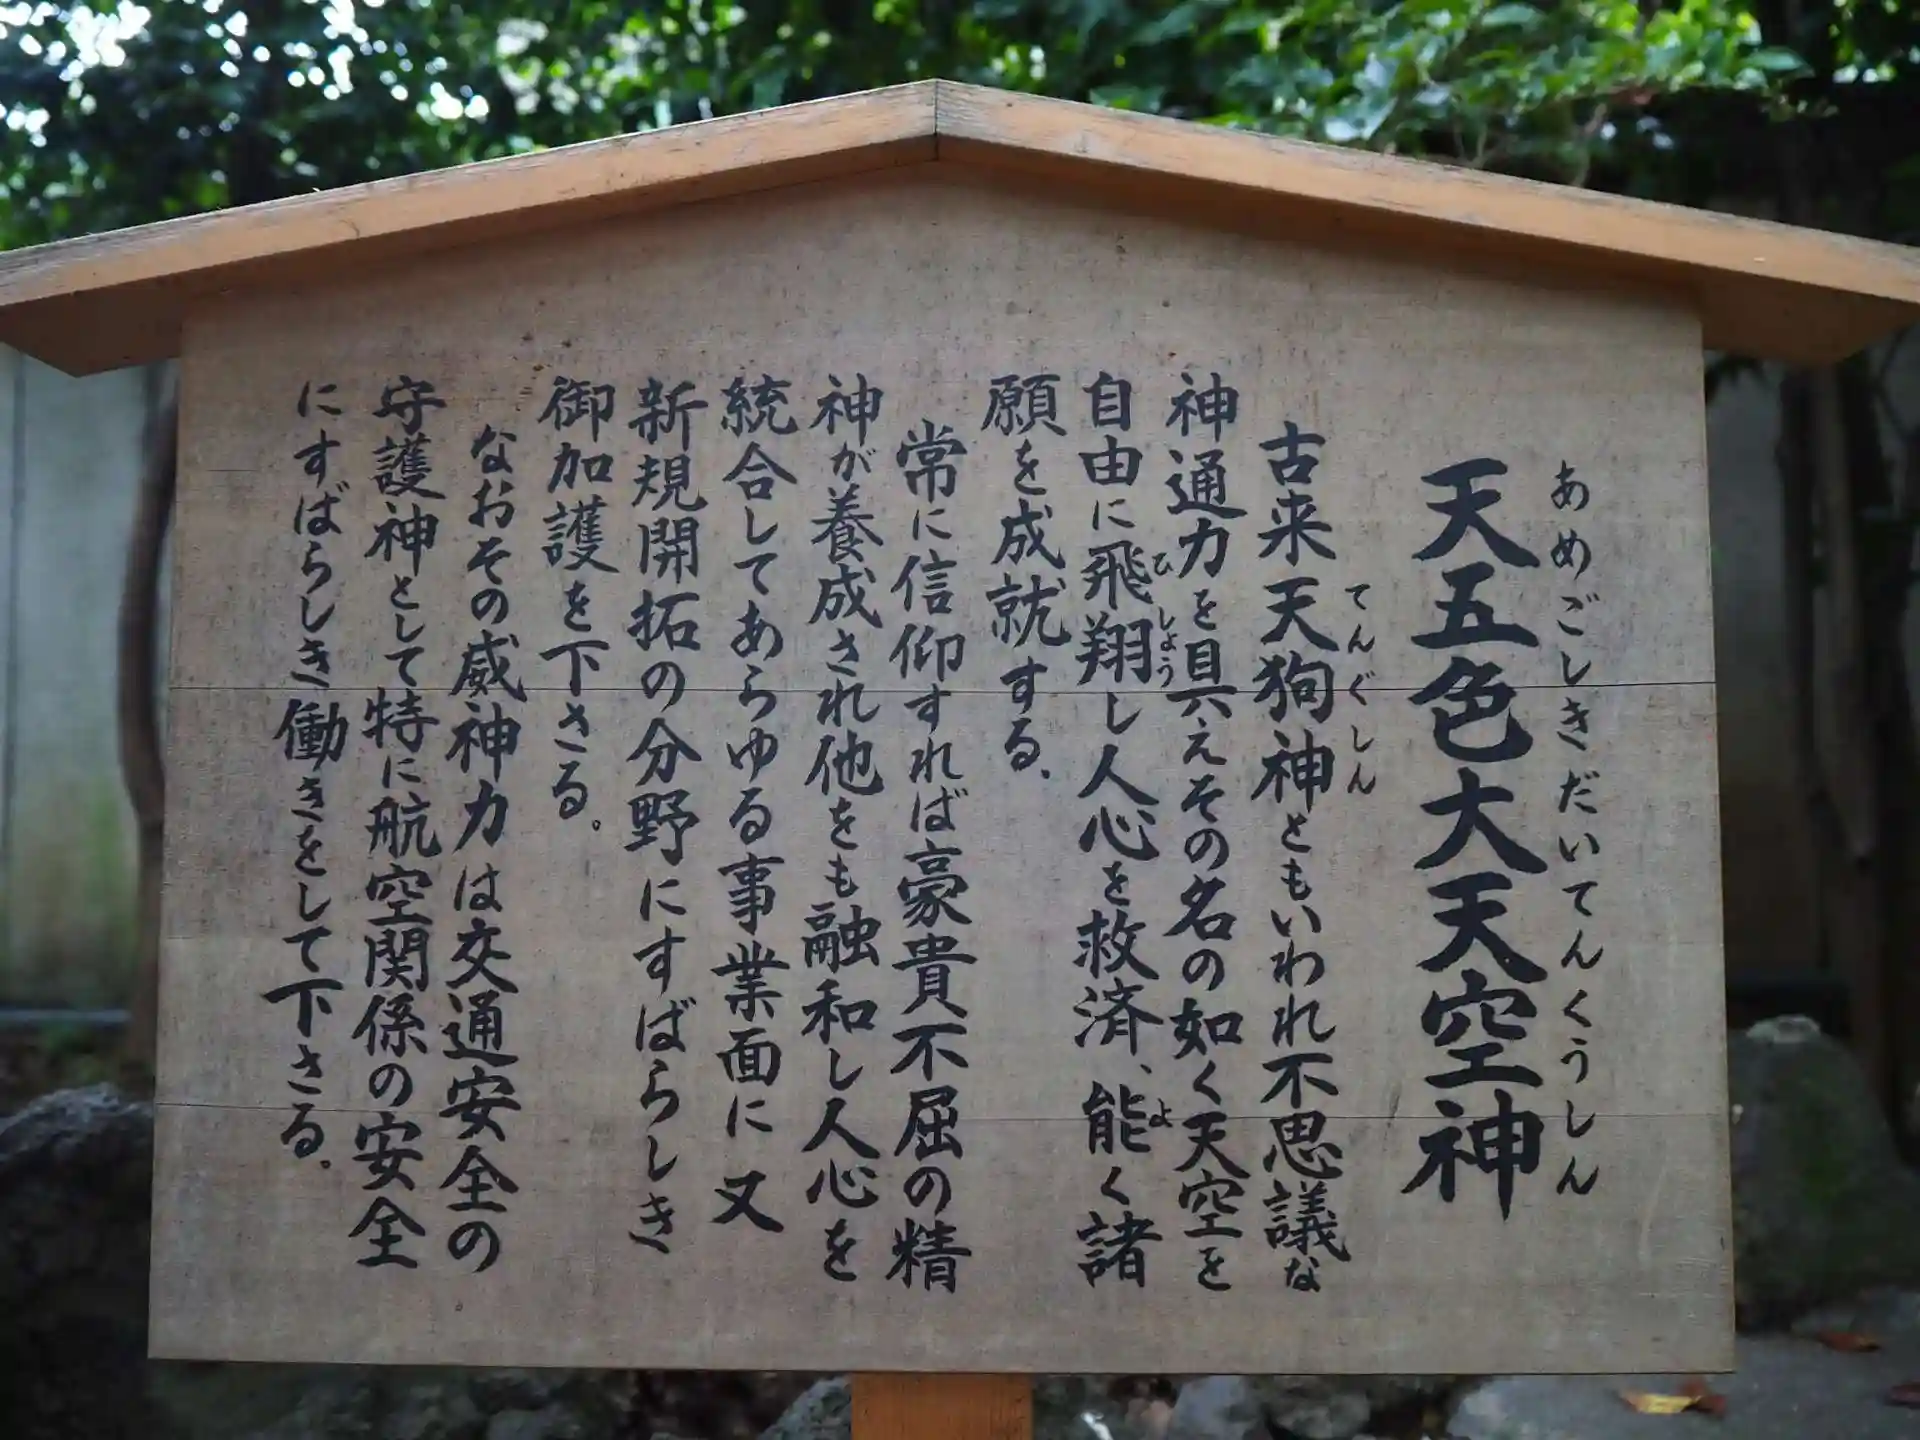 天五色大天空神
あめごしきだいてんくうしん
古来天狗神ともいわれ不思議な
てんぐしん
神通力を具えその名の如く天空を
自由に飛翔し人心を救済、能く諸
ひしょう
よ
願を成就する、
常に信仰すれば豪貴不屈の精
神が養成され他をも融和し人心を
統合してあらゆる事業面に又
新規開拓の分野にすばらしき
御加護を下さる。
なおその威神力は交通安全の
守護神として特に航空関係の安全
にすばらしき働きをして下さる、